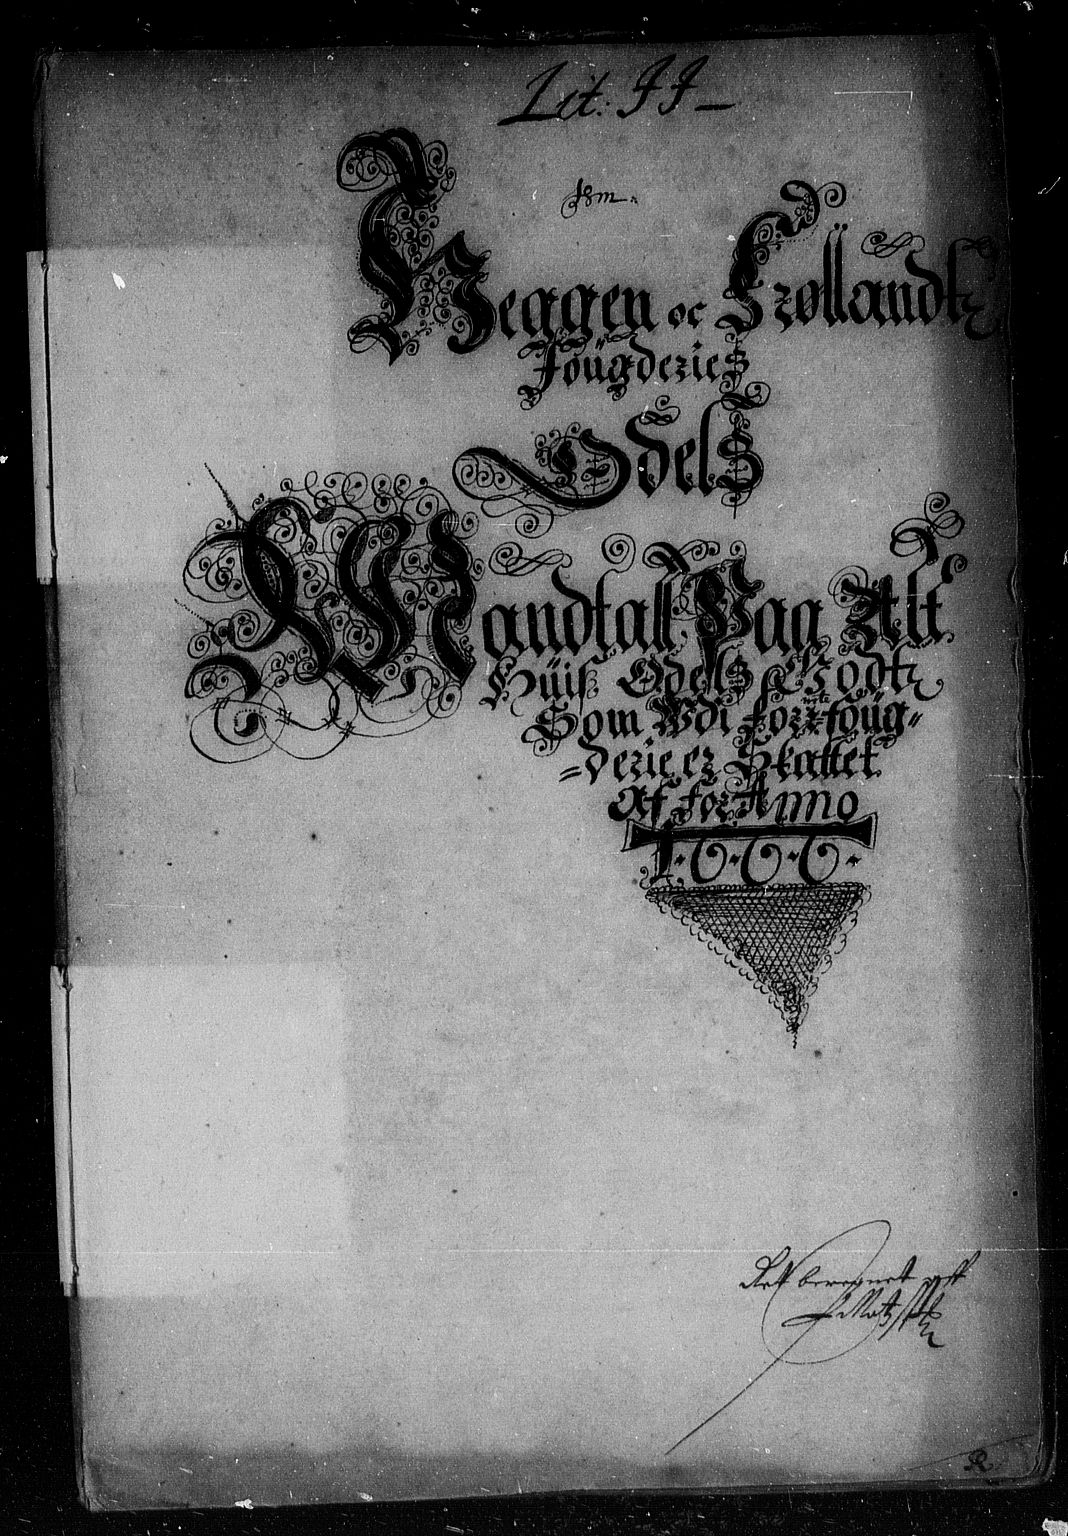 Lit: II
Neggen oc Frøllandtz
Foügderies
Odels
Mandtall Paa Alt
Hüiß Odels Godtz
Som Udi forne foüg-
=derie er Skattet
Af for Anno
1·6·6·6·
Ret beregnet